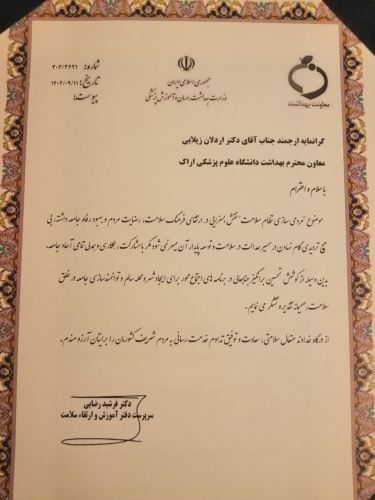 شماره: ۳۰۳/۳۶۲۱
تاریخ: ۱۴۰۲/۰۹/۱۱
پیوست:
جمهوری اسلامی ایران
وزارت بهداشت، درمان و آموزش پزشکی
معاونت بهداشت
گرانمایه ارجمند جناب آقای دکتر اردلان زیلابی
معاون محترم بهداشت دانشگاه علوم پزشکی اراک
با سلام و احترام
موضوع "مردمی سازی نظام سلامت" نقش بسزایی در ارتقای فرهنگ سلامت، رضایت مردم و بهبود رفاه جامعه داشته، بی
هیچ تردیدی گام نهادن در مسیر عدالت در سلامت و توسعه پایدار آن میسر نمی شود مگر با مشارکت، همکاری و همدلی تمامی آحاد جامعه.
بدین وسیله از کوشش تحسین برانگیز جنابعالی در برنامه های اجتماع محور برای ایجاد شهر و محله سالم و توانمندسازی جامعه در خلق
سلامت، صمیمانه تقدیر و تشکر می نمایم.
از درگاه خداوند متعال سلامتی، سعادت و توفیق تداوم خدمت رسانی به مردم شریف کشورمان را برایتان آرزومندم.
دکتر فرشید رضایی
سرپرست دفتر آموزش و ارتقاء سلامت